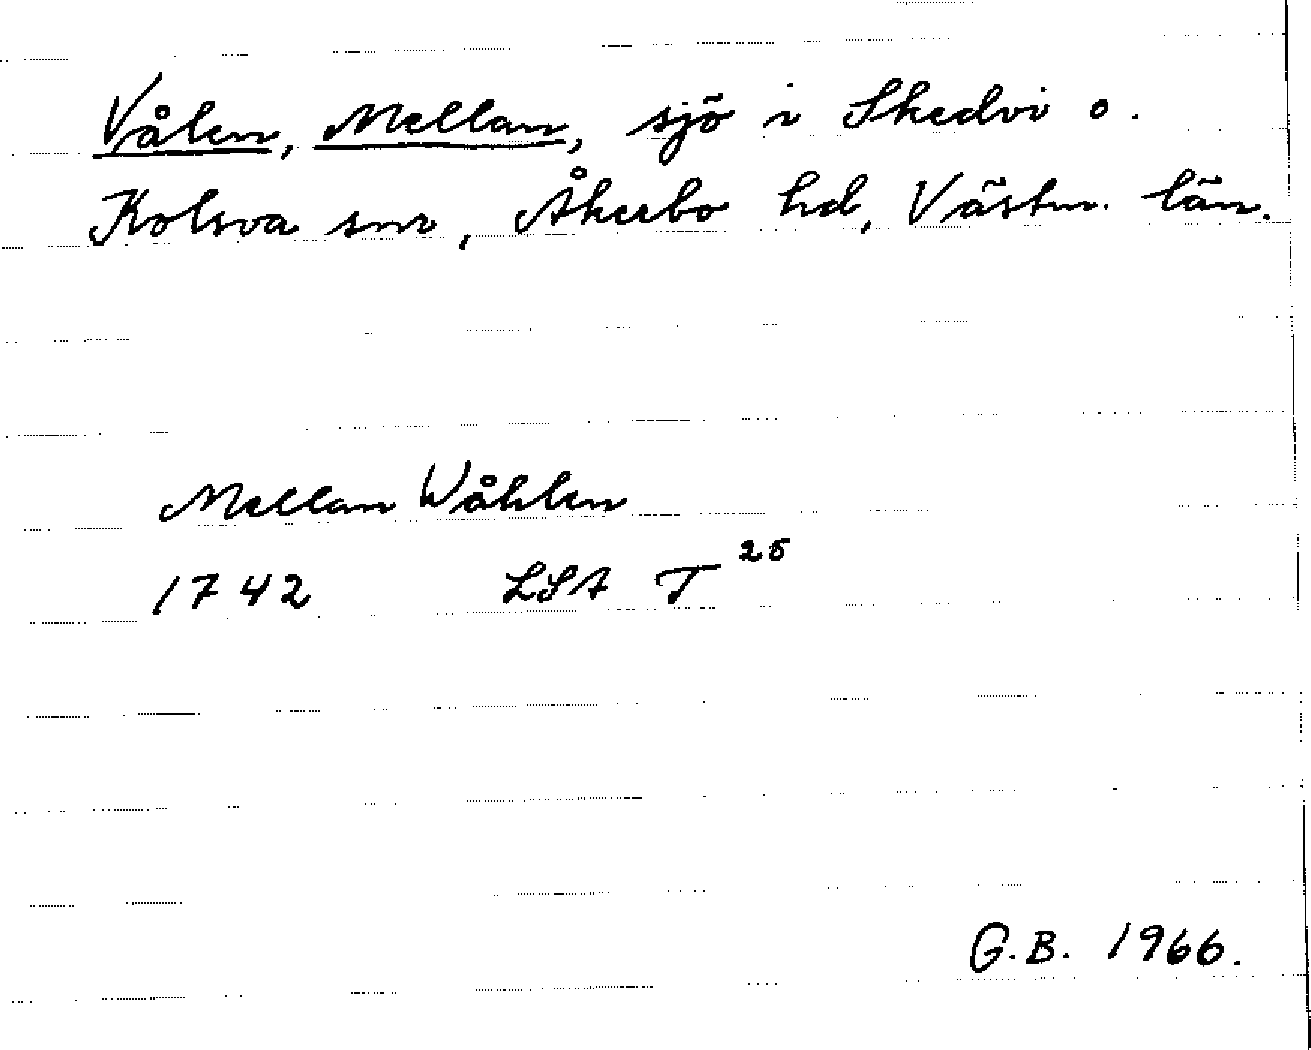 Vålen, Mellan, sjö i Skedvi o.
Kolsva snr, Åkerbo hd, Västm. län.
Mellan Wåhlen
1742 LSA T 25
G.B. 1966.